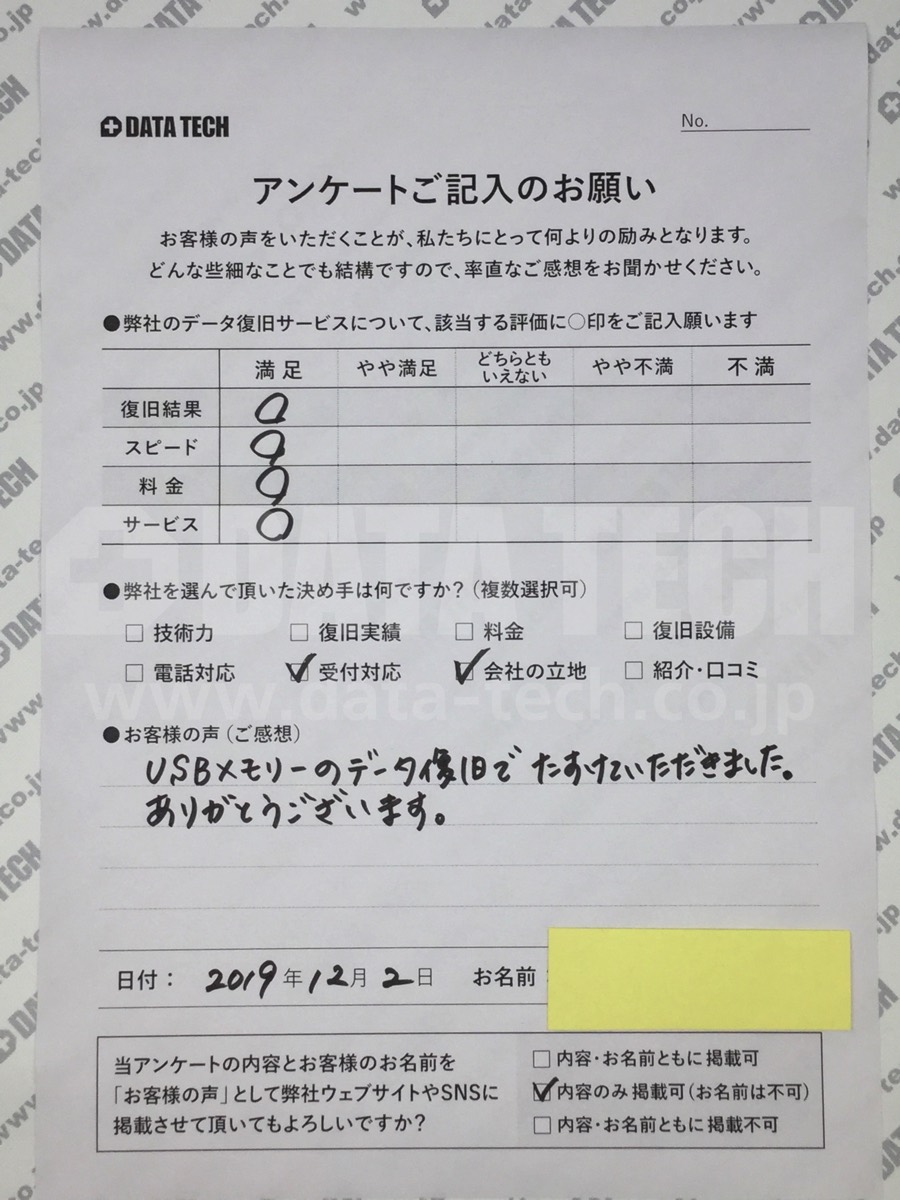 DATA TECH
No.
アンケートご記入のお願い
お客様の声をいただくことが、私たちにとって何よりの励みとなります。
どんな些細なことでも結構ですので、率直なご感想をお聞かせください。
●弊社のデータ復旧サービスについて、該当する評価に○印をご記入願います
満足 やや満足 どちらとも いえない やや不満 不満
復旧結果 ○
スピード ○
料金 ○
サービス ○
DATA TECH
●弊社を選んで頂いた決め手は何ですか?(複数選択可)
□ 技術力 □ 復旧実績 □ 料金 □ 復旧設備
□ 電話対応 ☑ 受付対応 ☑ 会社の立地 □ 紹介・口コミ
www.data-tech.co.jp
●お客様の声(ご感想)
USBメモリーのデータ復旧でたすけていただきました。
ありがとうございます。
日付: 2019年12月2日 お名前:
当アンケートの内容とお客様のお名前を
「お客様の声」として弊社ウェブサイトやSNSに
掲載させて頂いてもよろしいですか?
□内容・お名前ともに掲載可
☑内容のみ掲載可(お名前は不可)
□内容・お名前ともに掲載不可